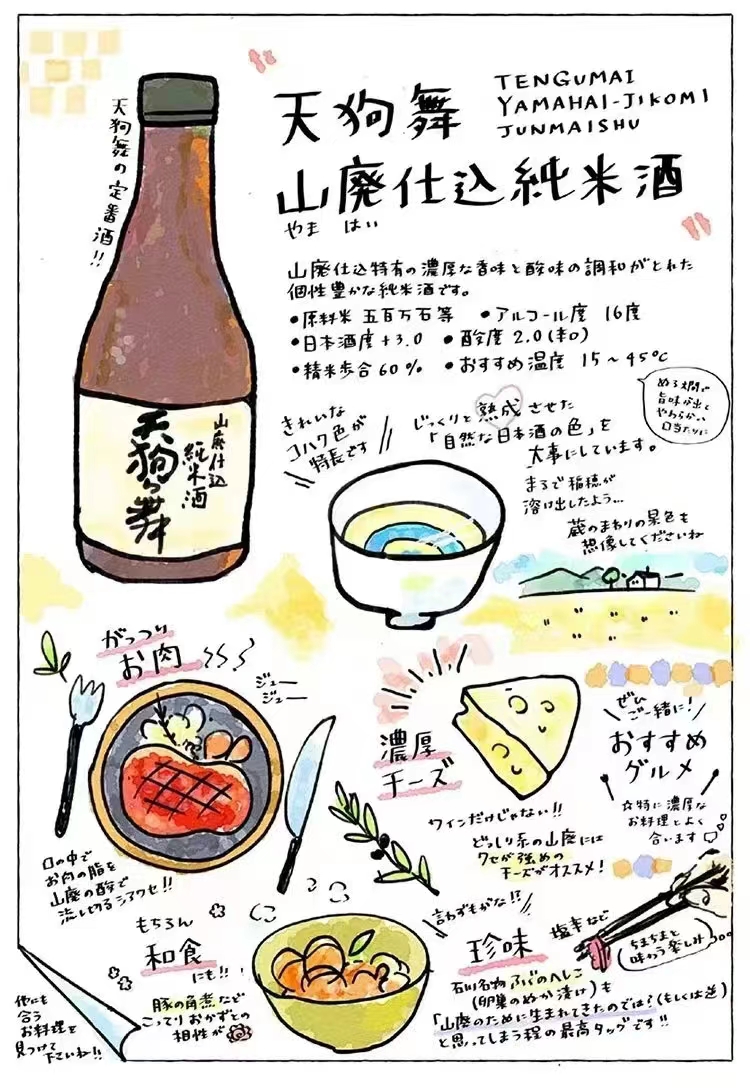 天狗舞の定番酒!!
天狗舞
TENGUMAI
YAMAHAI-JIKOMI
JUNMAISHU
山廃仕込純米酒
やま はい
山廃仕込特有の濃厚な香味と酸味の調和がとれた
個性豊かな純米酒です。
•原料米 五百万石等 •アルコール度 16度
•日本酒度+3.0 •酸度 2.0(辛口)
•精米歩合60% •おすすめ温度 15〜45℃
ぬる燗で
旨味が出て
やわらかい
口当たりに
山廃仕込
純米酒
天狗舞
きれいな
コハク色が
特長です
じっくりと熟成させた
「自然な日本酒の色」を
大事にしています。
まるで稲穂が
溶け出したよう…
蔵のまわりの景色も
想像してくださいね
がっつり
お肉
ジュー
ジュー
口の中で
お肉の脂を
山廃の酸で
流し切るシアワセ!!
濃厚
チーズ
ワインだけじゃない!!
どっしり系の山廃には
クセが強めの
チーズがオススメ!
ぜひ
ご一緒に!
おすすめ
グルメ
☆特に濃厚な
お料理とよく
合います
もちろん
和食
にも!!
豚の角煮など
こってりおかずとの
相性が
言わずもがな!?
珍味
塩辛など
(ちまちまと
味わう楽しみ)
石川名物 ふぐのへしこ
(卵巣のぬか漬け)も
「山廃のために生まれてきたのでは?(もしくは逆)
と思ってしまう程の最高タッグです!!
他にも
合う
お料理を
見つけて
下さいね!!